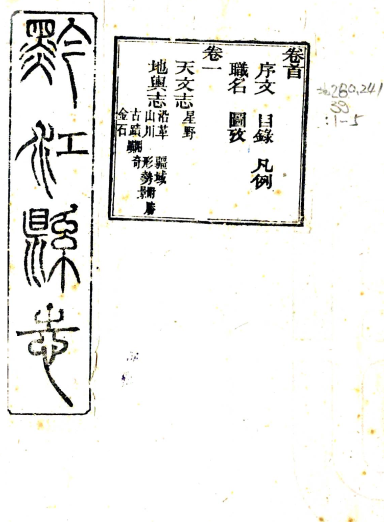 黔江縣志
卷首
序文 目錄 凡例
職名 圖攷
卷一
天文志 星野
地輿志 沿革 疆域
山川 形勢 關隘
古蹟 附奇景
金石
:1-5